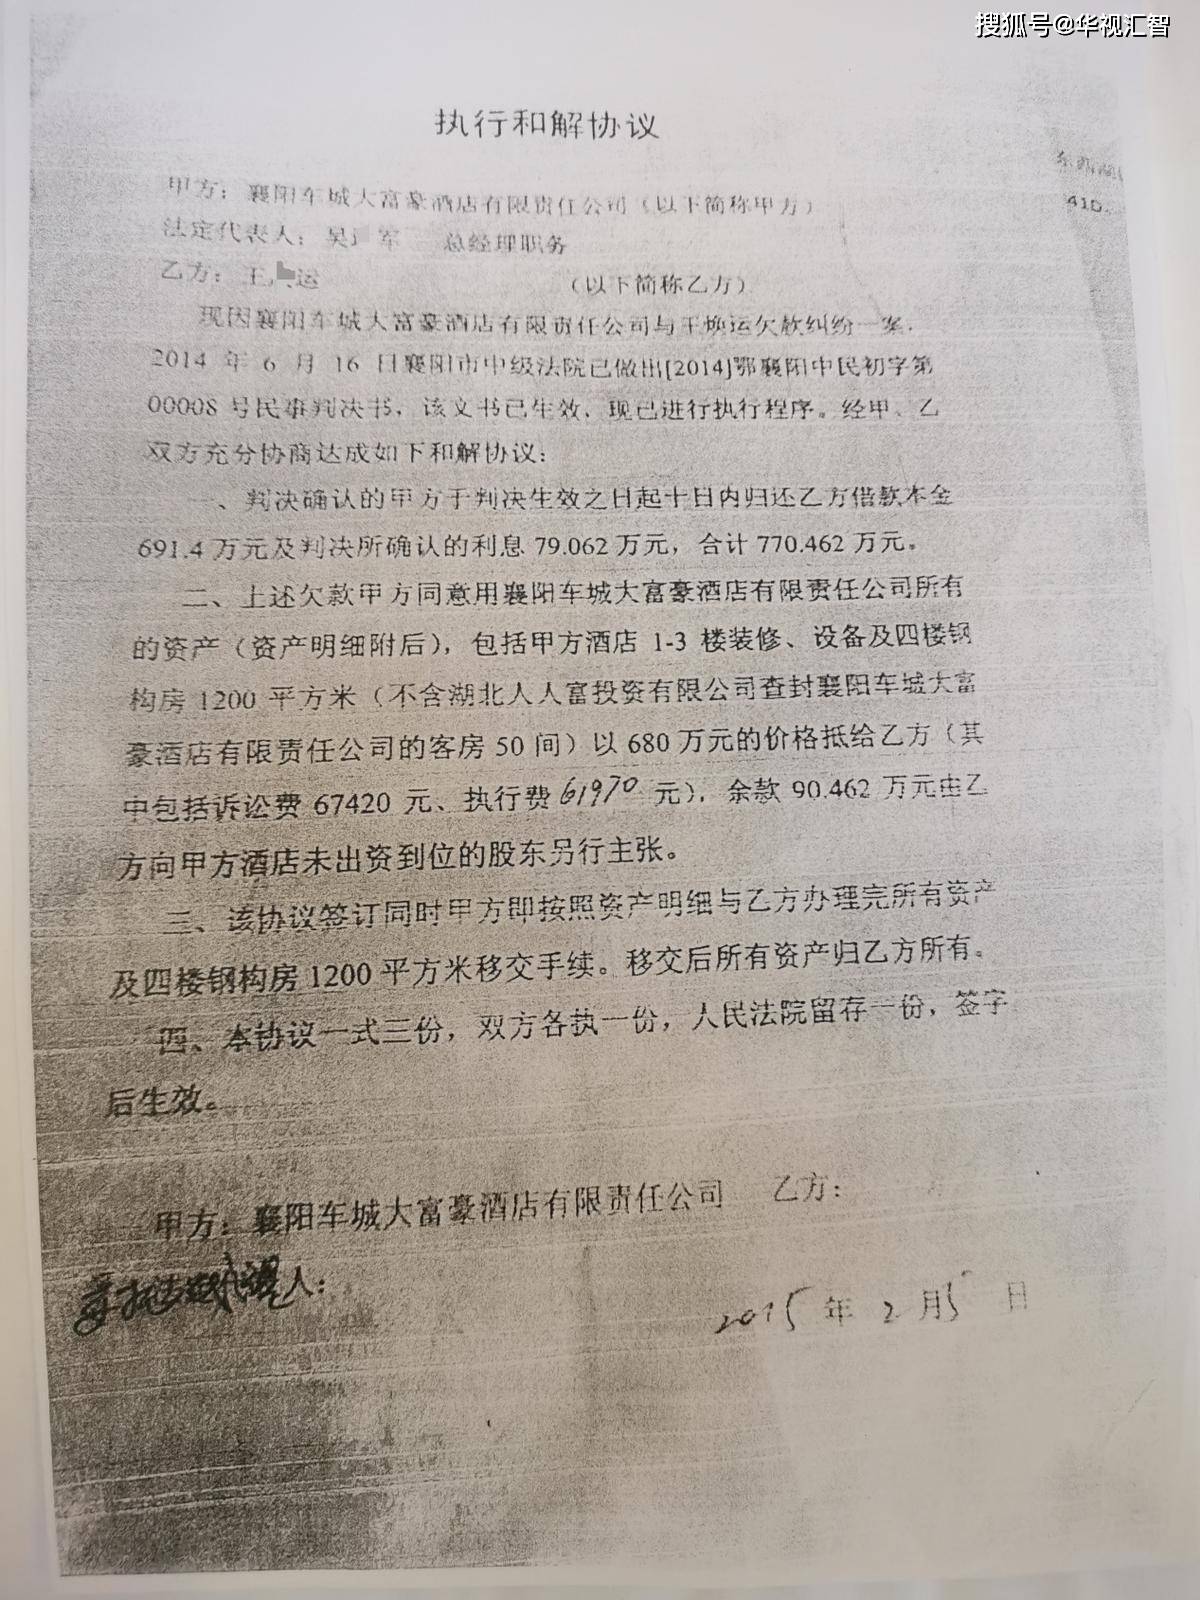 搜狐号@华视汇智
执行和解协议
东西湖
410
甲方：襄阳车城大富豪酒店有限责任公司（以下简称甲方）
法定代表人：吴 军 总经理职务
乙方：王 运 （以下简称乙方）
现因襄阳车城大富豪酒店有限责任公司与王焕运欠款纠纷一案，
2014 年 6 月 16 日襄阳市中级法院已做出[2014]鄂襄阳中民初字第
00008 号民事判决书，该文书已生效、现已进行执行程序。经甲、乙
双方充分协商达成如下和解协议：
一、判决确认的甲方于判决生效之日起十日内归还乙方借款本金
691.4 万元及判决所确认的利息 79.062 万元，合计 770.462 万元。
二、上述欠款甲方同意用襄阳车城大富豪酒店有限责任公司所有
的资产（资产明细附后），包括甲方酒店 1-3 楼装修、设备及四楼钢
构房 1200 平方米（不含湖北人人富投资有限公司查封襄阳车城大富
豪酒店有限责任公司的客房 50 间）以 680 万元的价格抵给乙方（其
中包括诉讼费 67420 元、执行费 61970 元），余款 90.462 万元由乙
方向甲方酒店未出资到位的股东另行主张。
三、该协议签订同时甲方即按照资产明细与乙方办理完所有资产
及四楼钢构房 1200 平方米移交手续。移交后所有资产归乙方所有。
四、本协议一式三份，双方各执一份，人民法院留存一份，签字
后生效。
甲方：襄阳车城大富豪酒店有限责任公司 乙方：
人：
2015 年 2 月 5 日